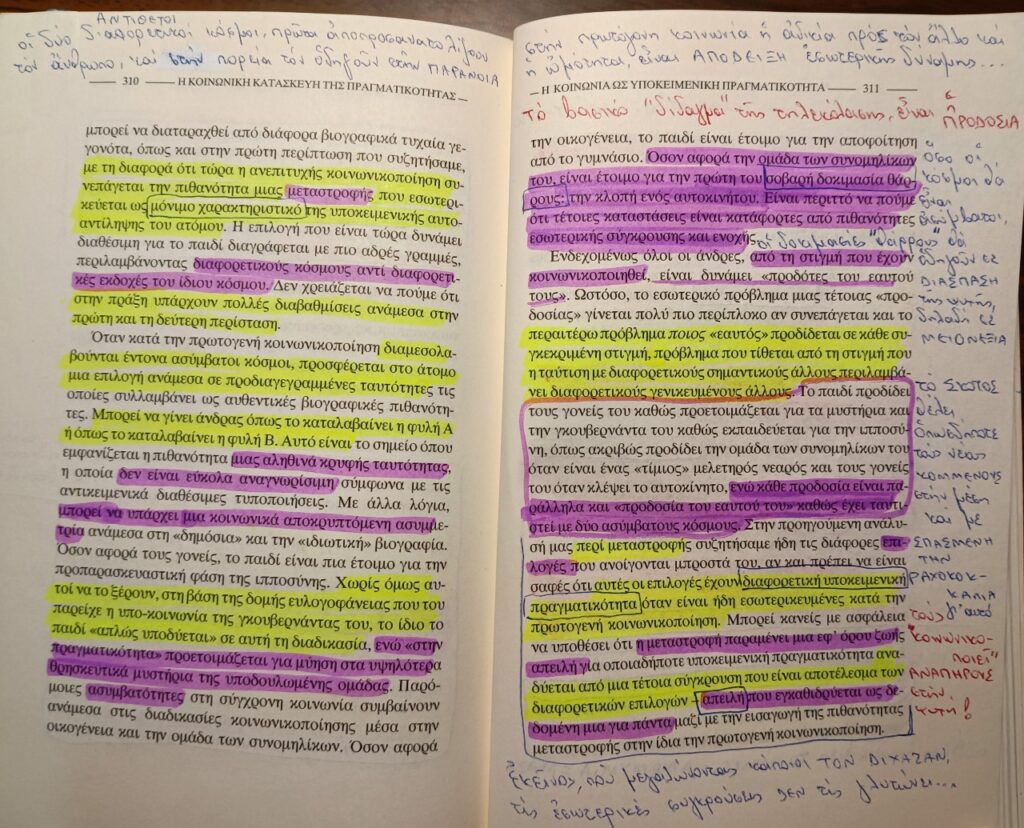 ΑΝΤΙΘΕΤΟΙ
οἱ δύο διαφορετικοί κόσμοι, πρῶτα ἀποπροσανατολίζουν
τόν ἄνθρωπο, καί στήν πορεία τόν ὁδηγοῦν στήν ΠΑΡΑΝΟΙΑ
310 Η ΚΟΙΝΩΝΙΚΗ ΚΑΤΑΣΚΕΥΗ ΤΗΣ ΠΡΑΓΜΑΤΙΚΟΤΗΤΑΣ
μπορεί να διαταραχθεί από διάφορα βιογραφικά τυχαία γε-
γονότα, όπως και στην πρώτη περίπτωση που συζητήσαμε,
με τη διαφορά ότι τώρα η ανεπιτυχής κοινωνικοποίηση συ-
νεπάγεται την πιθανότητα μιας μεταστροφής που εσωτερι-
κεύεται ως μόνιμο χαρακτηριστικό της υποκειμενικής αυτο-
αντίληψης του ατόμου. Η επιλογή που είναι τώρα δυνάμει
διαθέσιμη για το παιδί διαγράφεται με πιο αδρές γραμμές,
περιλαμβάνοντας διαφορετικούς κόσμους αντί διαφορετι-
κές εκδοχές του ίδιου κόσμου. Δεν χρειάζεται να πούμε ότι
στην πράξη υπάρχουν πολλές διαβαθμίσεις ανάμεσα στην
πρώτη και τη δεύτερη περίσταση.
Όταν κατά την πρωτογενή κοινωνικοποίηση διαμεσολα-
βούνται έντονα ασύμβατοι κόσμοι, προσφέρεται στο άτομο
μια επιλογή ανάμεσα σε προδιαγεγραμμένες ταυτότητες τις
οποίες συλλαμβάνει ως αυθεντικές βιογραφικές πιθανότη-
τες. Μπορεί να γίνει άνδρας όπως το καταλαβαίνει η φυλή Α
ή όπως το καταλαβαίνει η φυλή Β. Αυτό είναι το σημείο όπου
εμφανίζεται η πιθανότητα μιας αληθινά κρυφής ταυτότητας,
η οποία δεν είναι εύκολα αναγνωρίσιμη σύμφωνα με τις
αντικειμενικά διαθέσιμες τυποποιήσεις. Με άλλα λόγια,
μπορεί να υπάρχει μια κοινωνικά αποκρυπτόμενη ασυμμε-
τρία ανάμεσα στη «δημόσια» και την «ιδιωτική» βιογραφία.
Όσον αφορά τους γονείς, το παιδί είναι πια έτοιμο για την
προπαρασκευαστική φάση της ιπποσύνης. Χωρίς όμως αυ-
τοί να το ξέρουν, στη βάση της δομής ευλογοφάνειας που του
παρείχε η υπο-κοινωνία της γκουβερνάντας του, το ίδιο το
παιδί «απλώς υποδύεται» σε αυτή τη διαδικασία, ενώ «στην
πραγματικότητα» προετοιμάζεται για μύηση στα υψηλότερα
θρησκευτικά μυστήρια της υποδουλωμένης ομάδας. Παρό-
μοιες ασυμβατότητες στη σύγχρονη κοινωνία συμβαίνουν
ανάμεσα στις διαδικασίες κοινωνικοποίησης μέσα στην
οικογένεια και την ομάδα των συνομηλίκων. Όσον αφορά
στήν πρωτόγονη κοινωνία ἡ ἀδικία πρός τόν ἄλλο καί
ἡ ὠμότητα, εἶναι ΑΠΟΔΕΙΞΗ ἐσωτερικῆς δύναμης...
Η ΚΟΙΝΩΝΙΑ ΩΣ ΥΠΟΚΕΙΜΕΝΙΚΗ ΠΡΑΓΜΑΤΙΚΟΤΗΤΑ 311
τό βασικό "δίδαγμα" τῆς τηλεκόλασης, εἶναι ἡ ΠΡΟΔΟΣΙΑ
την οικογένεια, το παιδί είναι έτοιμο για την αποφοίτηση
από το γυμνάσιο. Όσον αφορά την ομάδα των συνομηλίκων
του, είναι έτοιμο για την πρώτη του σοβαρή δοκιμασία θάρ-
ρους: την κλοπή ενός αυτοκινήτου. Είναι περιττό να πούμε
ότι τέτοιες καταστάσεις είναι κατάφορτες από πιθανότητες
εσωτερικής σύγκρουσης και ενοχής.
Ενδεχομένως όλοι οι άνδρες, από τη στιγμή που έχουν
κοινωνικοποιηθεί, είναι δυνάμει «προδότες του εαυτού
τους». Ωστόσο, το εσωτερικό πρόβλημα μιας τέτοιας «προ-
δοσίας» γίνεται πολύ πιο περίπλοκο αν συνεπάγεται και το
περαιτέρω πρόβλημα ποιος «εαυτός» προδίδεται σε κάθε συ-
γκεκριμένη στιγμή, πρόβλημα που τίθεται από τη στιγμή που
η ταύτιση με διαφορετικούς σημαντικούς άλλους περιλαμβά-
νει διαφορετικούς γενικευμένους άλλους. Το παιδί προδίδει
τους γονείς του καθώς προετοιμάζεται για τα μυστήρια και
την γκουβερνάντα του καθώς εκπαιδεύεται για την ιπποσύ-
νη, όπως ακριβώς προδίδει την ομάδα των συνομηλίκων του
όταν είναι ένας «τίμιος» μελετηρός νεαρός και τους γονείς
του όταν κλέψει το αυτοκίνητο, ενώ κάθε προδοσία είναι πα-
ράλληλα και «προδοσία του εαυτού του» καθώς έχει ταυτι-
στεί με δύο ασύμβατους κόσμους. Στην προηγούμενη ανάλυ-
σή μας περί μεταστροφής συζητήσαμε ήδη τις διάφορες επι-
λογές που ανοίγονται μπροστά του, αν και πρέπει να είναι
σαφές ότι αυτές οι επιλογές έχουν διαφορετική υποκειμενική
πραγματικότητα όταν είναι ήδη εσωτερικευμένες κατά την
πρωτογενή κοινωνικοποίηση. Μπορεί κανείς με ασφάλεια
να υποθέσει ότι η μεταστροφή παραμένει μια εφ' όρου ζωής
απειλή για οποιαδήποτε υποκειμενική πραγματικότητα ανα-
δύεται από μια τέτοια σύγκρουση που είναι αποτέλεσμα των
διαφορετικών επιλογών – απειλή που εγκαθιδρύεται ως δε-
δομένη μια για πάντα μαζί με την εισαγωγή της πιθανότητας
μεταστροφής στην ίδια την πρωτογενή κοινωνικοποίηση.
ὅσο οἱ
κόσμοι θά
εἶναι
ἀσύμβατοι,
οἱ δοκιμασίες "θάρρους" θά
ὁδηγοῦν σέ
ΔΙΑΣΠΑΣΗ
τῆς ψυχῆς,
δηλαδή σέ
ΜΕΙΟΝΕΞΙΑ
τό ΣΚΟΤΟΣ
θέλει
ὁπωσδήποτε
τούς νέους
κομμένους
στήν μέση
καί μέ
ΣΠΑΣΜΕΝΗ
ΤΗΝ
ΡΑΧΟΚΟΚ-
ΚΑΛΙΑ
γι' αὐτό
τούς
"κοινωνικο-
ποιεῖ"
ΑΝΑΠΗΡΟΥΣ
στήν
ψυχή!
Ἐκεῖνος, πού μεγαλώνοντας κάποιοι ΤΟΝ ΔΙΧΑΣΑΝ,
τίς ἐσωτερικές συγκρούσεις δέν τίς γλυτώνει...